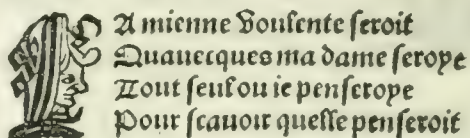 A mienne voulente seroit
Quauecques ma dame seroye
Tout seul ou ie penseroye
Pour scauoir quelle penseroit